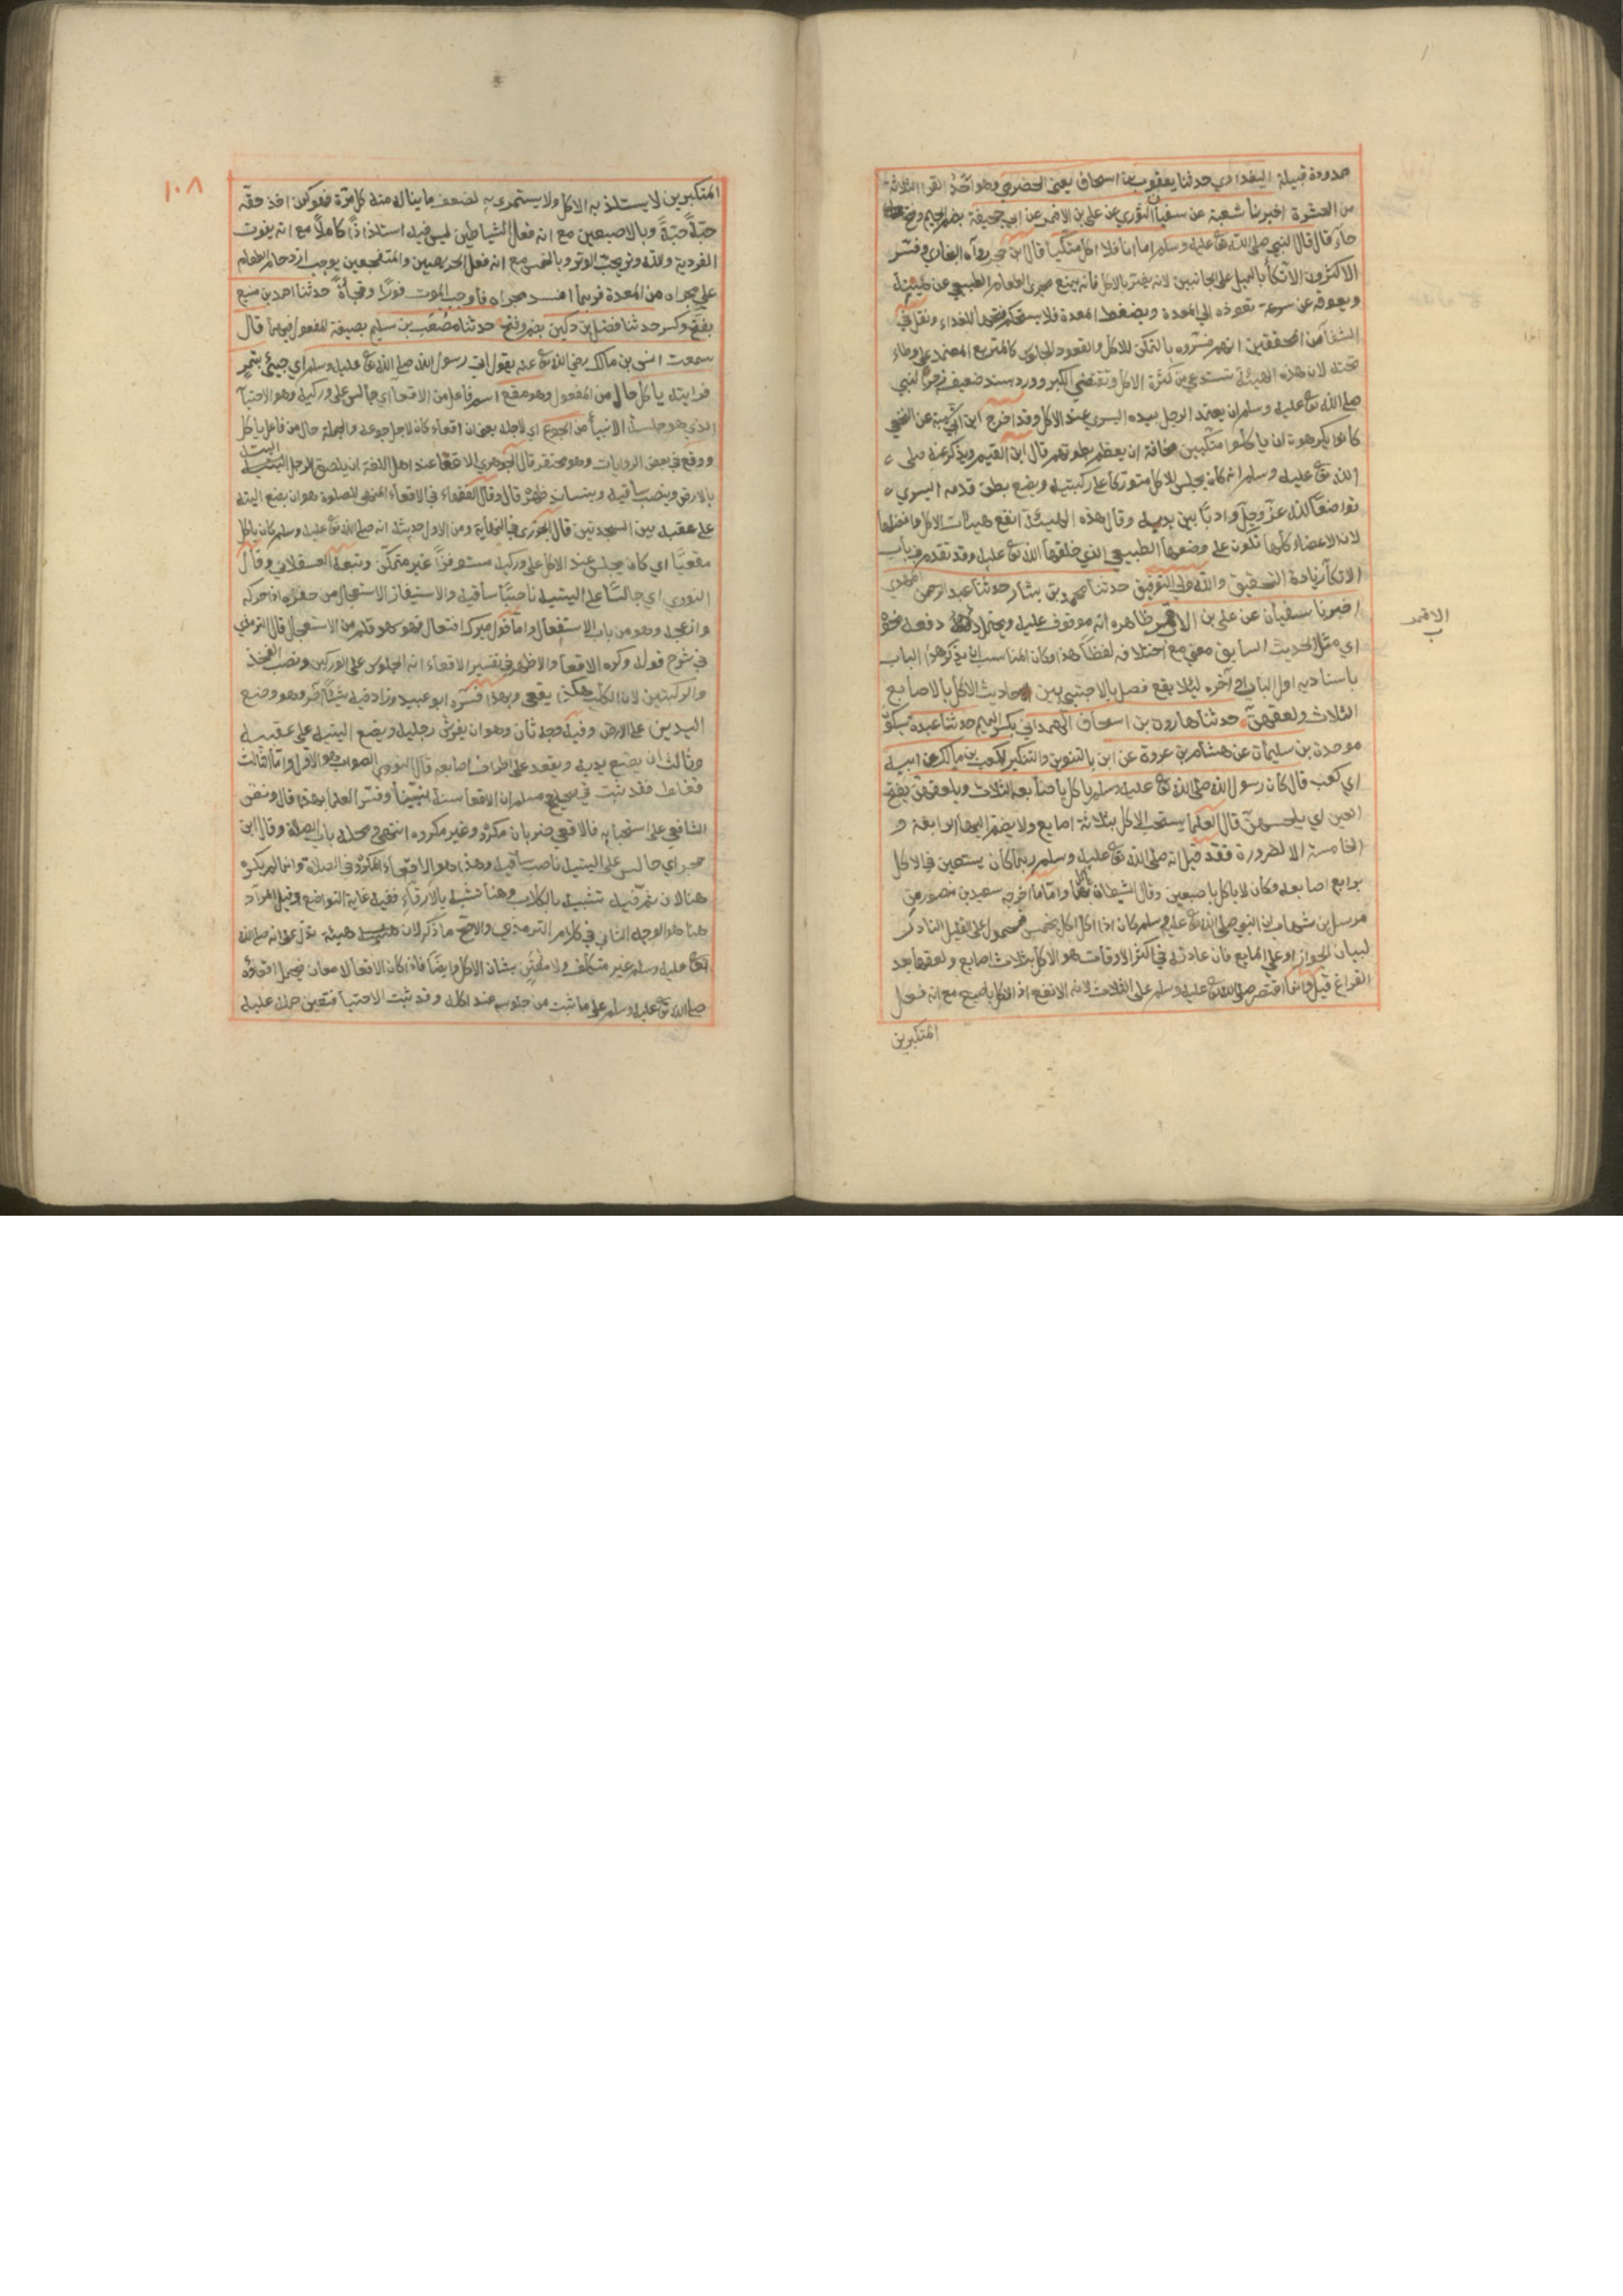 حدودة قبيلة البغدادي حدثنا يعقوب بن اسحاق يعني الحضرمي وهو احد القراء الثلاثة
من العشرة اخبرنا شعبة عن سفيان الثوري عن علي بن الاقمر عن ابي جحيفة بضم الجيم وفتح
حاء قال قال النبي صلى الله تع عليه وسلم اما انا فلا اكل متكيا قال ابن حجر رواه البخاري وفسر
الاكثرون الاتكا بالميل على الجانبين لانه يضر بالاكل فانه يمنع مجرى الطعام الطبيعي عن هيئته
ويعوقه عن سرعة نفوذه الي المعدة ويضغط المعدة فلا يستحكم فتحها للغذاء ونقل في
الشفا من المحققين انهم فسروه بالتمكن للاكل والقعود للجلوس كالمتربع المعتمد على وطاء
تحته لان هذه الهيئة تستدعي كثرة الاكل وتقتضي الكبر وورد بسند ضعيف زجر النبي
صلى الله تع عليه وسلم ان يعتمد الرجل بيده اليسرى عند الاكل وقد اخرج ابن ابي شيبة عن النخعي
كانوا يكرهون ان ياكلوا متكيين مخافة ان يعظم بطونهم قال ابن القيم ويذكر عنه صلى
الله تع عليه وسلم انه كان يجلس للاكل متوركا على ركبتيه ويضع بطن قدمه اليسرى
تواضعا لله عز وجل وادبا بين يديه وقال هذه الهيئة انفع هيئات الاكل وافضلها
لان الاعضاء كلها تكون على وضعها الطبيعي الذي خلقها الله تع عليه وقد تقدم في باب
الاتكا زيادة التحقيق والله ولي التوفيق حدثنا محمد بن بشار حدثنا عبد الرحمن المهدي
اخبرنا سفيان عن علي بن الاقمر ظاهره انه موقوف عليه ويحتمل رفعه نحوه
الاقمر
ب
اي مثل الحديث السابق معنى مع اختلافه لفظا هذا وكان المناسب ان يذكر هذا الباب
باسناديه اول الباب او آخره لئلا يقع فصل بالاجنبي بين احاديث الاكل بالاصابع
الثلاث ولعقهن حدثنا هارون بن اسحاق الهمداني بكسر الميم حدثنا عبدة بسكون
موحدة بن سليمان عن هشام بن عروة عن ابن بالتنوين والتنكير لكعب بن مالك عن ابيه
اي كعب قال كان رسول الله صلى الله تع عليه وسلم ياكل باصابعه الثلاث ويلعقهن بفتح
العين اي يلحسهن قال العلما يستحب الاكل بثلاثة اصابع ولا يضم اليها الرابعة و
الخامسة الا لضرورة فقد قيل انه صلى الله تع عليه وسلم ربما كان يستعين في الاكل
برابع اصابعه وكان لا ياكل باصبعين وقال الشيطان ياكل بهما واما ما اخرجه سعيد بن منصور من
مرسل بن شهاب ان النبي صلى الله تع عليه وسلم كان اذا اكل اكل بخمس فمحمول على القليل النادر
لبيان الجواز او على المايع فان عادته في اكثر الاوقات هو الاكل بثلاث اصابع ولعقها بعد
الفراغ قيل وانما اقتصر صلى الله تع عليه وسلم على الثلاث لانه الانفع اذ الاكل باصبع مع انه فعل
المتكبرين
١٠٨
المتكبرين لا يستلذ به الاكل ولا يستمرئ به لضعف ما يناله منه كل مرة فهو كمن اخذ حقه
حبة حبة وبالاصبعين مع انه فعل الشياطين ليس فيه استلذاذا كاملا مع انه يفوت
الفردية والله وتر يحب الوتر وبالخمس مع انه فعل الحريصين والمتفجعين يوجب ازدحام الطعام
على مجراه من المعدة فربما انسد مجراه فاوجب الموت فورا وفجأة حدثنا احمد بن منيع
بفتح وكسر حدثنا فضل بن دكين بضم وفتح حدثنا مصعب بن سليم بصيغة المفعول فيهما قال
سمعت انس بن مالك رضي الله تع عنه يقول اتي رسول الله صلى الله تع عليه وسلم اي جيئ بتمر
فرايته ياكل حال من المفعول وهو مقع اسم فاعل من الاقعا اي جالس على وركيه وهو الاحتبا
الذي هو جلسة الانبيا من الجوع اي لاجله يعني ان اقعاءه كان لاجل جوعه والجملة حال من فاعل ياكل
ووقع في بعض الروايات وهو محتفز قال الجوهري الاقعا عند اهل اللغة ان يلصق الرجل اليتيه
بالارض وينصب ساقيه ويتساند ظهره قال وقال الفقهاء في الاقعاء المنهي للصلوة هو ان يضع اليته
على عقبه بين السجدتين قال الجزري في النهاية ومن الاول حديثه انه صلى الله تع عليه وسلم كان ياكل
مقعيا اي كان يجلس عند الاكل على وركيه مستوفزا غير متمكن وتبعه العسقلاني وقال
النووي اي جالسا على اليتيه ناصبا ساقيه والاستيفاز الاستعجال من حفزه اذا حركه
وازعجه وهو من باب الاستفعال واما قول ميرك افتعال فهو سهو قلم من الاستعجال قال الترمذي
في شرح قوله وكره الاقعا والاظهر في تفسير الاقعاء انه الجلوس على الوركين ونصب الفخذ
والركبتين لان الكلب هكذا يقعي وبهذا فسره ابو عبيد وزاد فيه شيئا آخر وهو وضع
اليدين على الارض وفيه وجه ثان وهو ان يفرش رجليه ويضع اليتيه على عقبيه
وثالث ان يضع يديه ويقعد على اطراف اصابعه قال النووي الصواب هو الاول واما الثالث
فغلط فقد ثبت في صحيح مسلم ان الاقعا سنة نبينا وفسر العلما بهذا قال ونص
الشافعي على استحبابه فالاقعي ضربان مكروه وغير مكروه انتهى ومحله باب الصلاة وقال ابن
حجر اي جالس على اليتيه ناصب ساقيه وهذا هو الاقعاء المكروه في الصلاة وانما لم يكره
هنا لان ثم فيه تشبيه بالكلاب وهنا تشبه بالارقاء ففيه غاية التواضع وقيل المراد
هنا هو الوجه الثاني في كلام الترمذي والاصح ما ذكر لان هيئة تدل على انه صلى الله
تع عليه وسلم غير متكلف ولا معتن بشان الاكل وايضا فاذا كان الاقعا لا معان فيحمل اقعاؤه
صلى الله تع عليه وسلم على ما ثبت من جلوسه عند اكله وقد ثبت الاحتبا فتعين حمله عليه